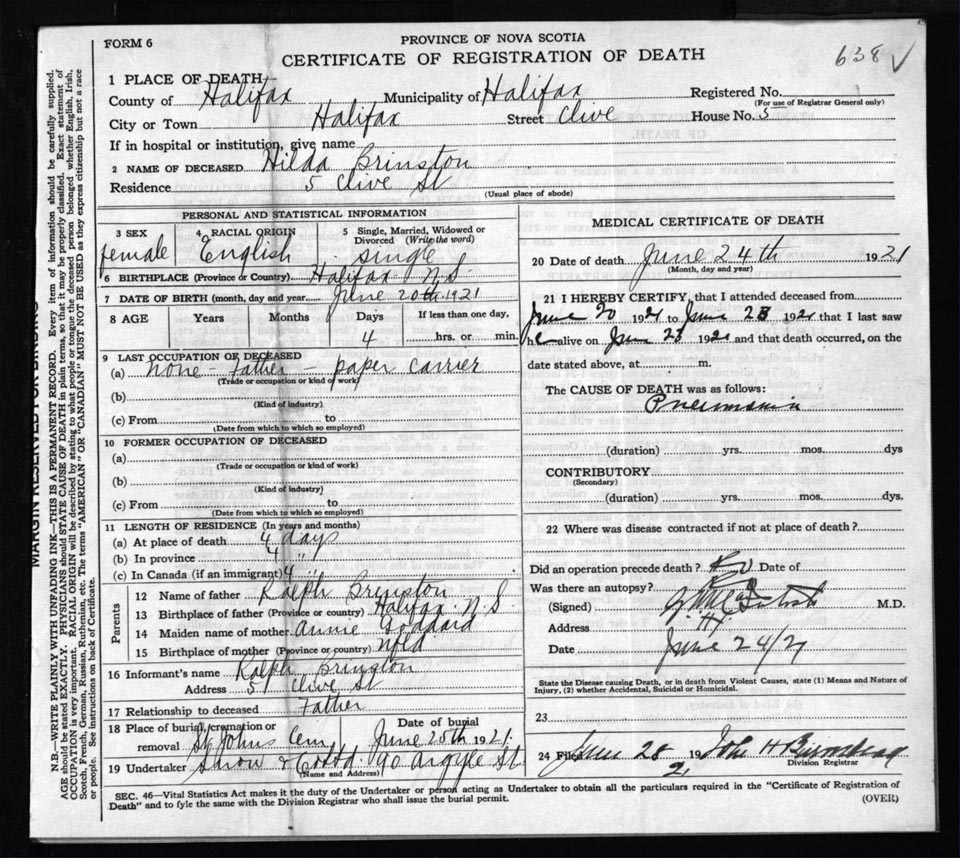 FORM 6
PROVINCE OF NOVA SCOTIA
CERTIFICATE OF REGISTRATION OF DEATH
638 ✓
1 PLACE OF DEATH
County of Halifax Municipality of Halifax Registered No.
(For use of Registrar General only)
City or Town Halifax Street Clive House No. 5
If in hospital or institution, give name
2 NAME OF DECEASED Hilda Brinston
Residence 5 Clive St
(Usual place of abode)
PERSONAL AND STATISTICAL INFORMATION
3 SEX 4 RACIAL ORIGIN 5 Single, Married, Widowed or Divorced (Write the word)
female English single
6 BIRTHPLACE (Province or Country) Halifax N.S.
7 DATE OF BIRTH (month, day and year) June 20th 1921
8 AGE Years Months Days If less than one day,
4 hrs. or min.
9 LAST OCCUPATION OF DECEASED
(a) none - Father - paper carrier
(Trade or occupation or kind of work)
(b)
(Kind of industry)
(c) From to
(Date from which to which so employed)
10 FORMER OCCUPATION OF DECEASED
(a)
(Trade or occupation or kind of work)
(b)
(Kind of industry)
(c) From to
(Date from which to which so employed)
11 LENGTH OF RESIDENCE (In years and months)
(a) At place of death 4 days
(b) In province 4 "
(c) In Canada (if an immigrant) 4 "
Parents
12 Name of father Ralph Brinston
13 Birthplace of father (Province or country) Halifax N.S
14 Maiden name of mother Annie Goddard
15 Birthplace of mother (Province or country) Nfld
16 Informant's name Ralph Brinston
Address 5 Clive St
17 Relationship to deceased Father
18 Place of burial, cremation or removal St Johns Cem Date of burial June 25th 1921.
19 Undertaker Snow & 90 Argyle St.
(Name and Address)
MEDICAL CERTIFICATE OF DEATH
20 Date of death June 24th 1921
(Month, day and year)
21 I HEREBY CERTIFY, that I attended deceased from
June 20 1921 to June 23 1921 that I last saw
h alive on June 23 1921 and that death occurred, on the
date stated above, at m.
The CAUSE OF DEATH was as follows:
Pneumonia
(duration) yrs. mos. dys
CONTRIBUTORY
(Secondary)
(duration) yrs. mos. dys.
22 Where was disease contracted if not at place of death?
Did an operation precede death?
Was there an autopsy?
(Signed) M.D.
Address
Date June 24/21
State the Disease causing Death, or in death from Violent Causes, state (1) Means and Nature of
Injury, (2) whether Accidental, Suicidal or Homicidal.
23
24 Filed June 28 1921 John H
Division Registrar
SEC. 46—Vital Statistics Act makes it the duty of the Undertaker or person acting as Undertaker to obtain all the particulars required in the "Certificate of Registration of
Death" and to fyle the same with the Division Registrar who shall issue the burial permit.
(OVER)
MARGIN RESERVED FOR BINDING
N.B.—WRITE PLAINLY WITH UNFADING INK—THIS IS A PERMANENT RECORD. Every item of information should be carefully supplied.
AGE should be stated EXACTLY. PHYSICIANS should STATE CAUSE OF DEATH in plain terms, so that it may be properly classified. Exact statement of
OCCUPATION is very important. RACIAL ORIGIN will be described by stating to what people or tongue the deceased person belonged whether English, Irish,
Scotch, French, German, Russian, Ruthenian, etc. The terms "AMERICAN" OR "CANADIAN" MUST NOT BE USED as they express citizenship but not a race
or people. See instructions on back of Certificate.